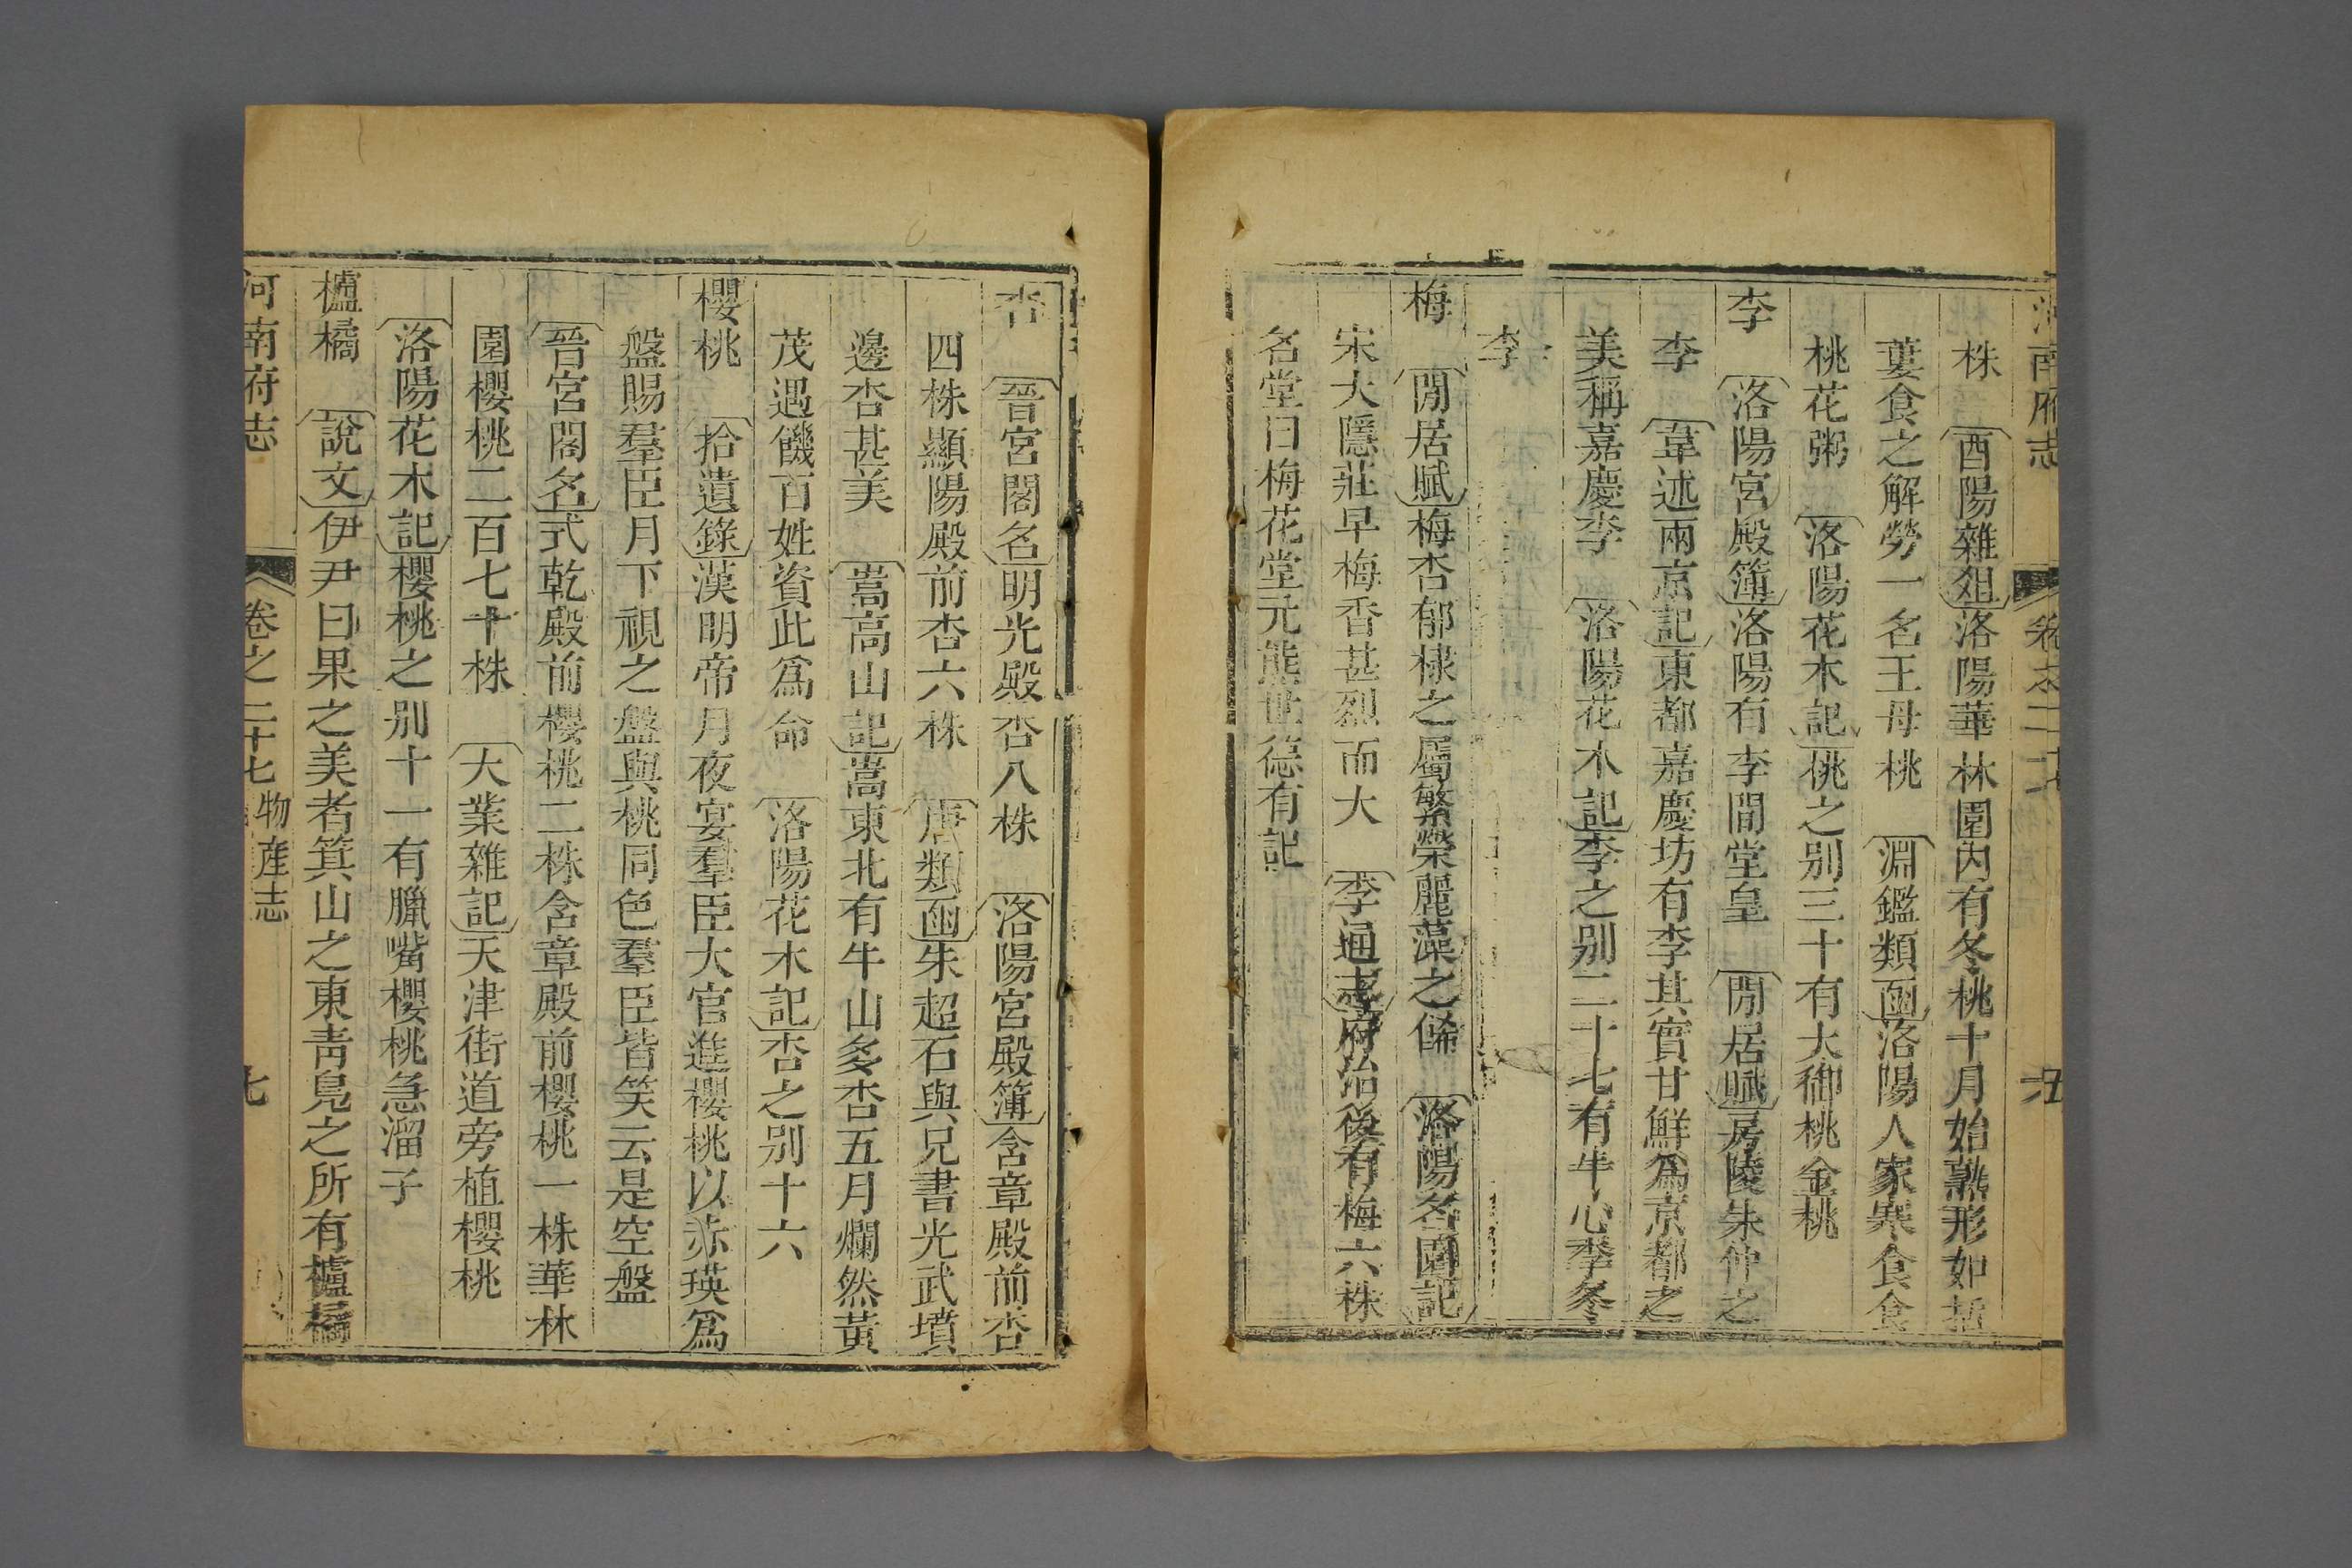 河南府志 卷之二十七 六
株 酉陽雜俎洛陽華林園內有冬桃十月始熟形如括
蔞食之解勞一名王母桃 淵鑑類函洛陽人家寒食食
桃花粥 洛陽花木記桃之別三十有大御桃金桃
李 洛陽宮殿簿洛陽有李間堂皇 閒居賦房陵朱仲之
李 韋述兩京記東都嘉慶坊有李其實甘鮮爲京都之
美稱嘉慶李 洛陽花木記李之別二十七有牛心李冬
李
梅 閒居賦梅杏郁棣之屬繁榮麗藻之餙 洛陽名園記
宋大隱莊早梅香甚烈而大 李通志府治後有梅六株
名堂曰梅花堂元熊世德有記
杏 晉宮閣名明光殿杏八株 洛陽宮殿簿含章殿前杏
四株顯陽殿前杏六株 唐類函朱超石與兄書光武墳
邊杏甚美 嵩高山記嵩東北有牛山多杏五月爛然黃
茂遇饑百姓資此爲命 洛陽花木記杏之別十六
櫻桃 拾遺錄漢明帝月夜宴羣臣大官進櫻桃以赤瑛爲
盤賜羣臣月下視之盤與桃同色羣臣皆笑云是空盤
晉宮閣名式乾殿前櫻桃二株含章殿前櫻桃一株華林
園櫻桃二百七十株 大業雜記天津街道旁植櫻桃
洛陽花木記櫻桃之別十一有臘嘴櫻桃急溜子
櫨橘 說文伊尹曰果之美者箕山之東靑鳧之所有櫨橘
河南府志 卷之二十七 物產志 七